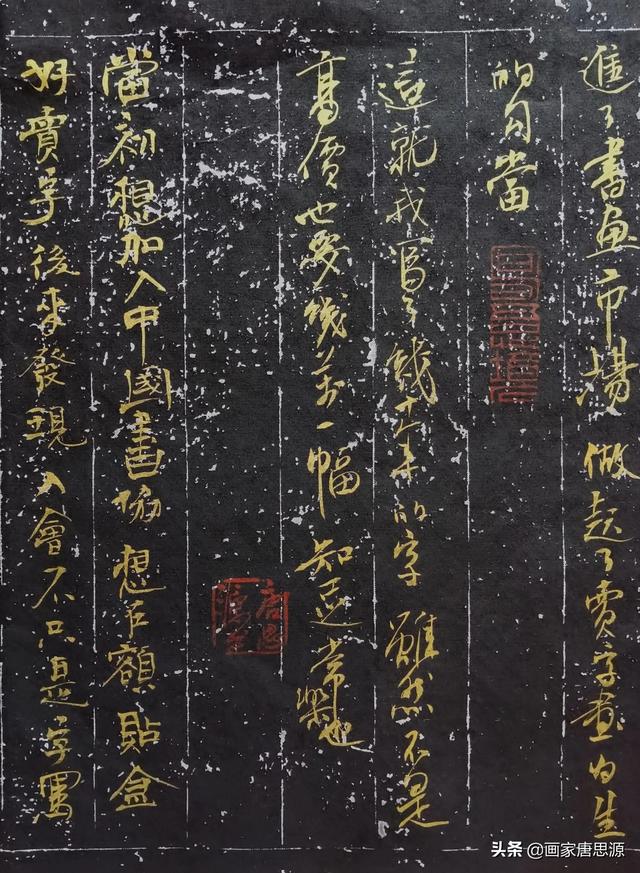 進了書画市場做起了賣字畫为生
的勾當
這就我寫了幾十年的字雖然不是
高價也要幾萬一幅知足常樂也
當初想加入中國書協想額貼金
好賣字後來發現入會不只是字寫
唐思源
头条 @画家唐思源